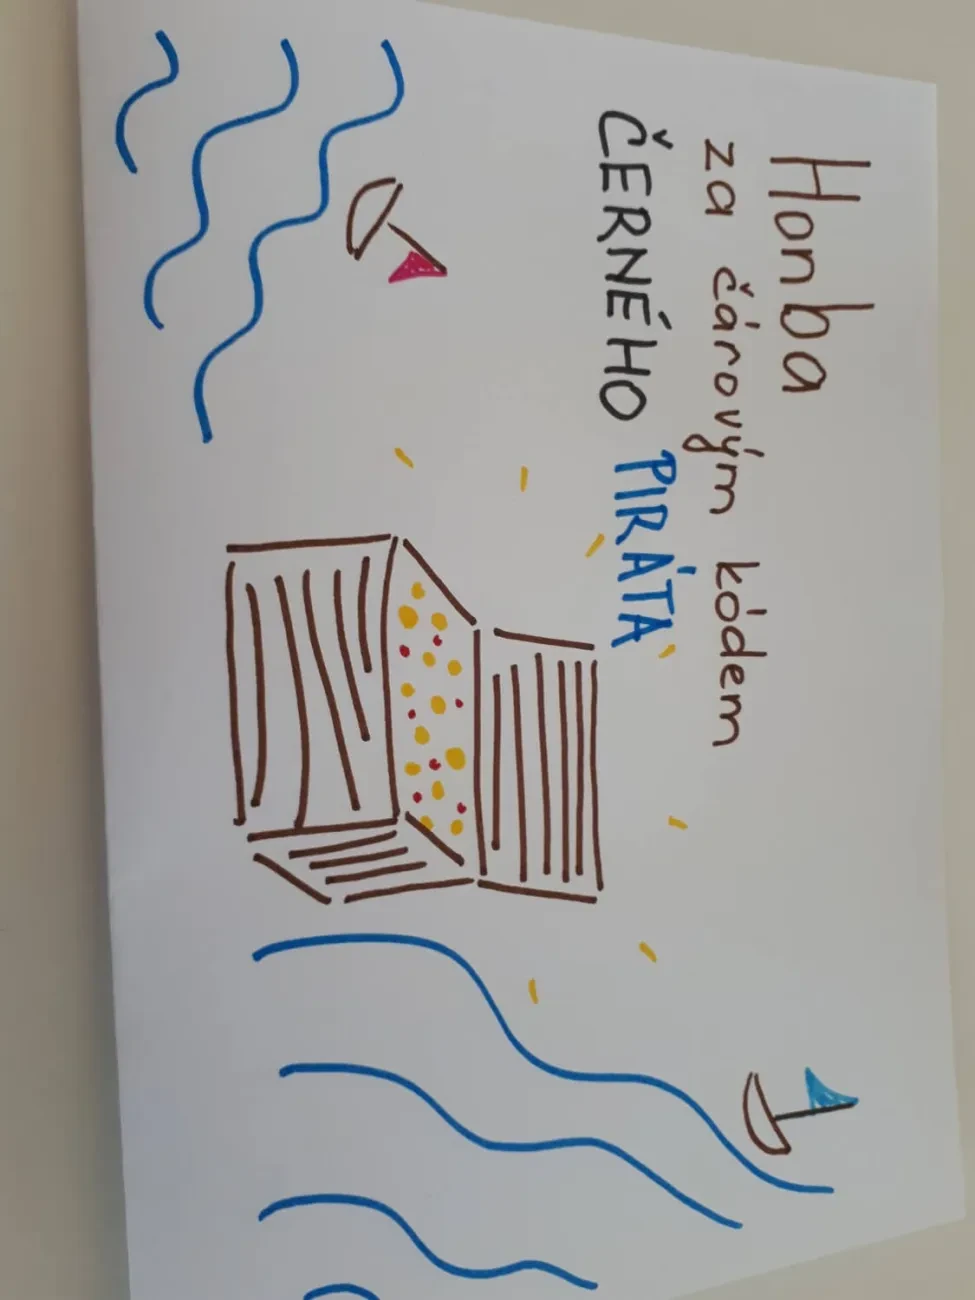 Honba
za čárovým kódem
ČERNÉHO PIRÁTA